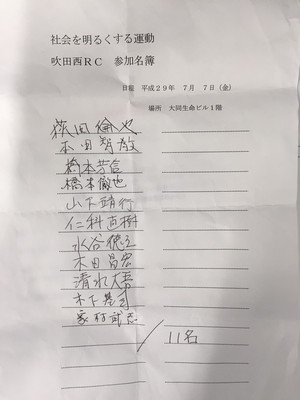 社会を明るくする運動
吹田西RC 参加名簿
日程 平成29年 7月 7日(金)
場所 大同生命ビル1階
荻田倫也
本田智敬
橋本芳信
橋本徹也
山下靖行
仁科直樹
水谷徳之
木田昌宏
清水大吾
木下基司
家村武志
11名